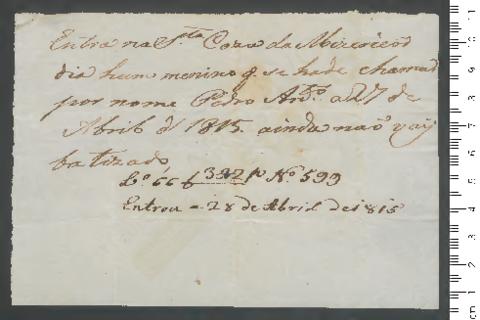 Entra na Sta Caza da Mizericor
dia hum menino q se hade chamar
por nome Pedro Anto. a 27 de
Abril d 1815. ainda naõ vaÿ
batizado
Lo. 66 f 332 No. 599
Entrou = 28 de Abril de 1815